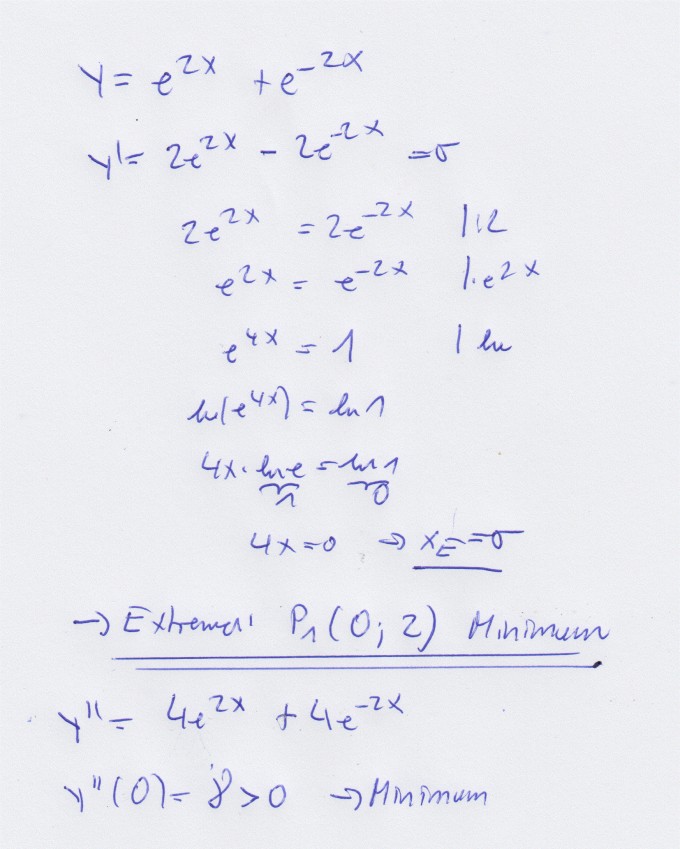 y = e^{2x} + e^{-2x}
y' = 2e^{2x} - 2e^{-2x} = 0
2e^{2x} = 2e^{-2x} |:2
e^{2x} = e^{-2x} |·e^{2x}
e^{4x} = 1 | ln
ln(e^{4x}) = ln 1
4x · ln e = ln 1
1 0
4x = 0 → x_E = 0
→ Extrema: P_1 (0; 2) Minimum
y'' = 4e^{2x} + 4e^{-2x}
y''(0) = 8 > 0 → Minimum